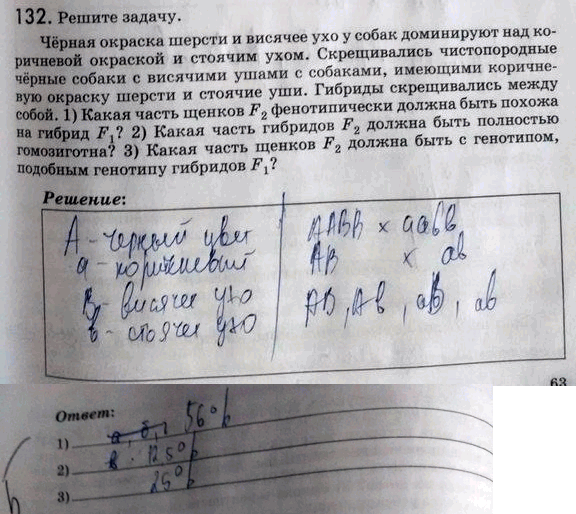 132. Решите задачу.
Чёрная окраска шерсти и висячее ухо у собак доминируют над ко-
ричневой окраской и стоячим ухом. Скрещивались чистопородные
чёрные собаки с висячими ушами с собаками, имеющими коричне-
вую окраску шерсти и стоячие уши. Гибриды скрещивались между
собой. 1) Какая часть щенков F₂ фенотипически должна быть похожа
на гибрид F₁? 2) Какая часть гибридов F₂ должна быть полностью
гомозиготна? 3) Какая часть щенков F₂ должна быть с генотипом,
подобным генотипу гибридов F₁?
Решение:
А - черный цвет
а - коричневый
В - висячее ухо
в - стоячее ухо
ААВВ х аавв
АВ х ав
АВ, Ав, аВ, ав
63
Ответ:
1) 56%
2) 12,5%
3) 25%